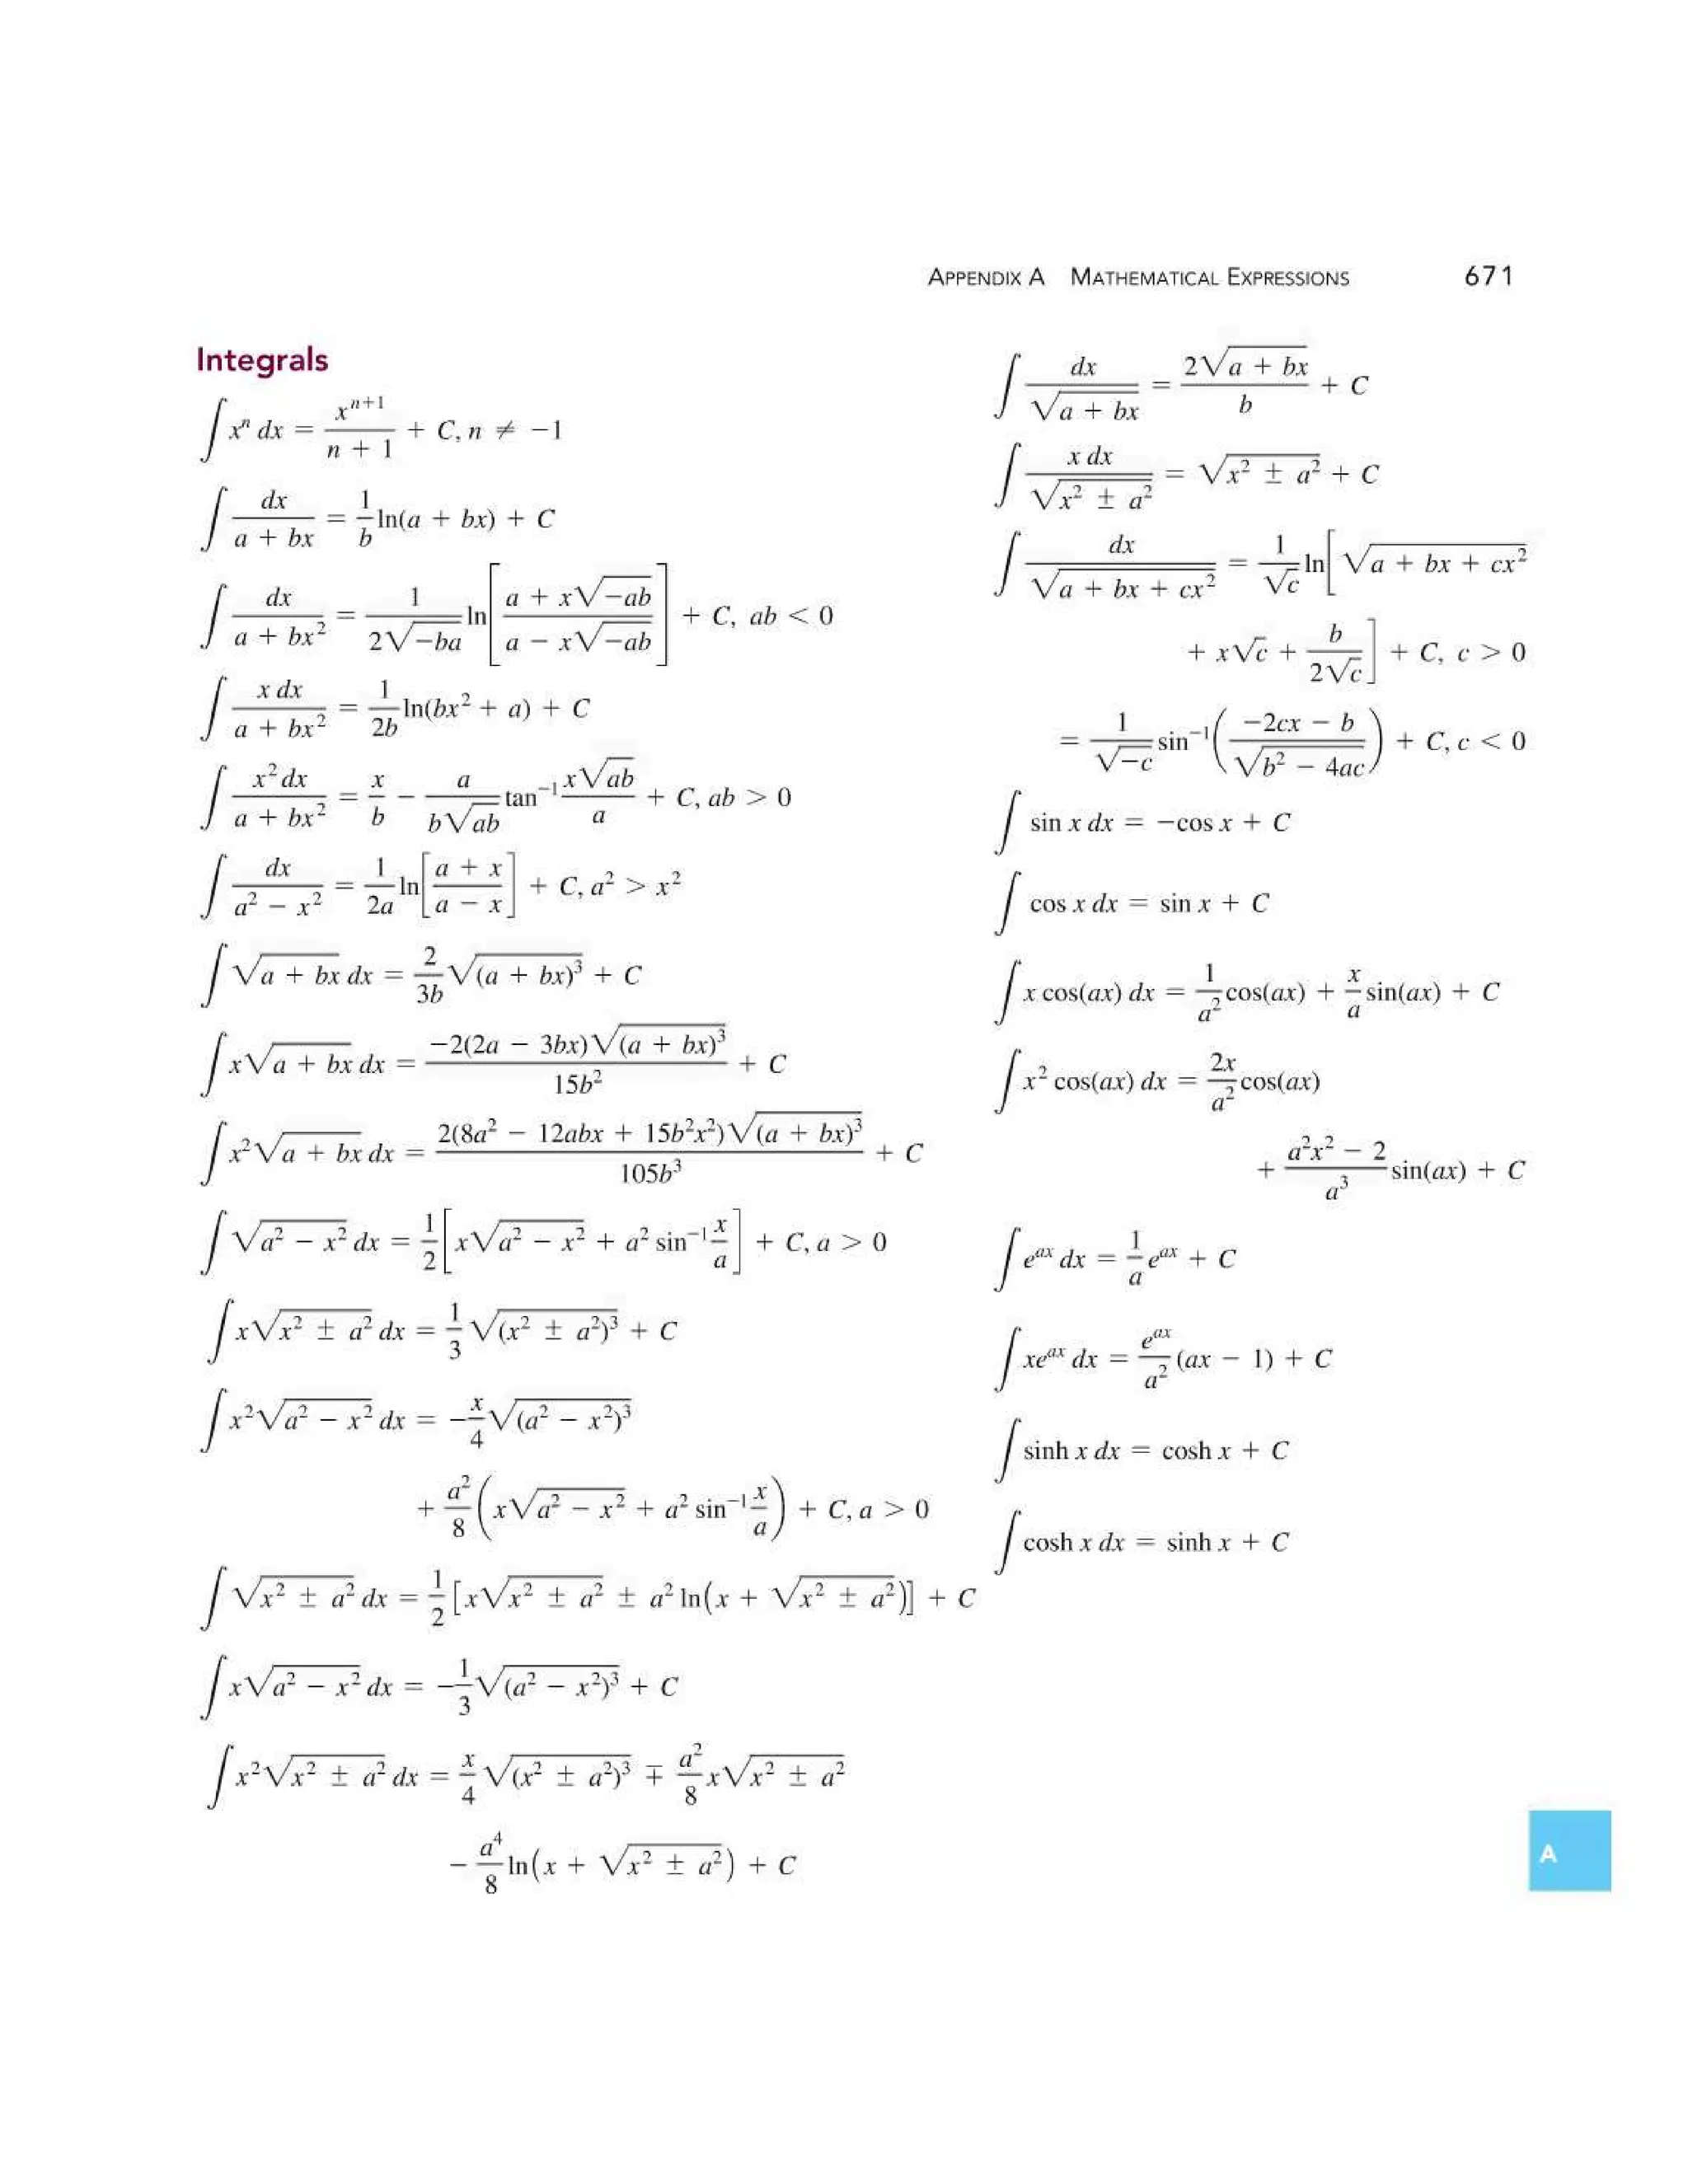 APPENDIX A MATHEMATICAL EXPRESSIONS 671
Integrals
∫ xⁿ dx = xⁿ⁺¹/(n + 1) + C, n ≠ −1
∫ dx/(a + bx) = (1/b) ln(a + bx) + C
∫ dx/(a + bx²) = 1/(2√(−ba)) ln[(a + x√(−ab))/(a − x√(−ab))] + C, ab < 0
∫ x dx/(a + bx²) = (1/2b) ln(bx² + a) + C
∫ x² dx/(a + bx²) = x/b − a/(b√(ab)) tan⁻¹ (x√(ab))/a + C, ab > 0
∫ dx/(a² − x²) = (1/2a) ln[(a + x)/(a − x)] + C, a² > x²
∫ √(a + bx) dx = (2/3b) √((a + bx)³) + C
∫ x√(a + bx) dx = −2(2a − 3bx)√((a + bx)³)/(15b²) + C
∫ x²√(a + bx) dx = 2(8a² − 12abx + 15b²x²)√((a + bx)³)/(105b³) + C
∫ √(a² − x²) dx = (1/2)[x√(a² − x²) + a² sin⁻¹ (x/a)] + C, a > 0
∫ x√(x² ± a²) dx = (1/3)√((x² ± a²)³) + C
∫ x²√(a² − x²) dx = −(x/4)√((a² − x²)³)
+ (a²/8)(x√(a² − x²) + a² sin⁻¹ (x/a)) + C, a > 0
∫ √(x² ± a²) dx = (1/2)[x√(x² ± a²) ± a² ln(x + √(x² ± a²))] + C
∫ x√(a² − x²) dx = −(1/3)√((a² − x²)³) + C
∫ x²√(x² ± a²) dx = (x/4)√((x² ± a²)³) ∓ (a²/8)x√(x² ± a²)
− (a⁴/8) ln(x + √(x² ± a²)) + C
∫ dx/√(a + bx) = 2√(a + bx)/b + C
∫ x dx/√(x² ± a²) = √(x² ± a²) + C
∫ dx/√(a + bx + cx²) = (1/√c) ln[√(a + bx + cx²)
+ x√c + b/(2√c)] + C, c > 0
= (1/√(−c)) sin⁻¹((−2cx − b)/√(b² − 4ac)) + C, c < 0
∫ sin x dx = −cos x + C
∫ cos x dx = sin x + C
∫ x cos(ax) dx = (1/a²) cos(ax) + (x/a) sin(ax) + C
∫ x² cos(ax) dx = (2x/a²) cos(ax)
+ ((a²x² − 2)/a³) sin(ax) + C
∫ eᵃˣ dx = (1/a) eᵃˣ + C
∫ xeᵃˣ dx = (eᵃˣ/a²)(ax − 1) + C
∫ sinh x dx = cosh x + C
∫ cosh x dx = sinh x + C
A